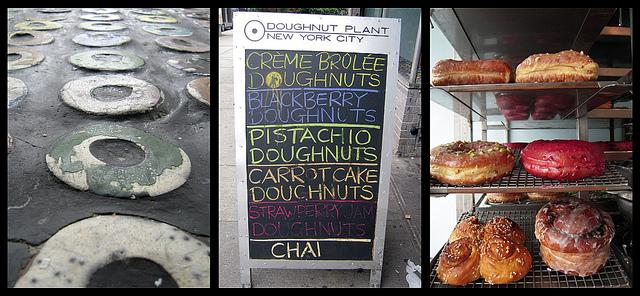 DOUGHNUT PLANT
NEW YORK CITY
CRÈME BRÛLÉE
DOUGHNUTS
BLACKBERRY
DOUGHNUTS
PISTACHIO
DOUGHNUTS
CARROT CAKE
DOUGHNUTS
STRAWBERRY JAM
DOUGHNUTS
CHAI